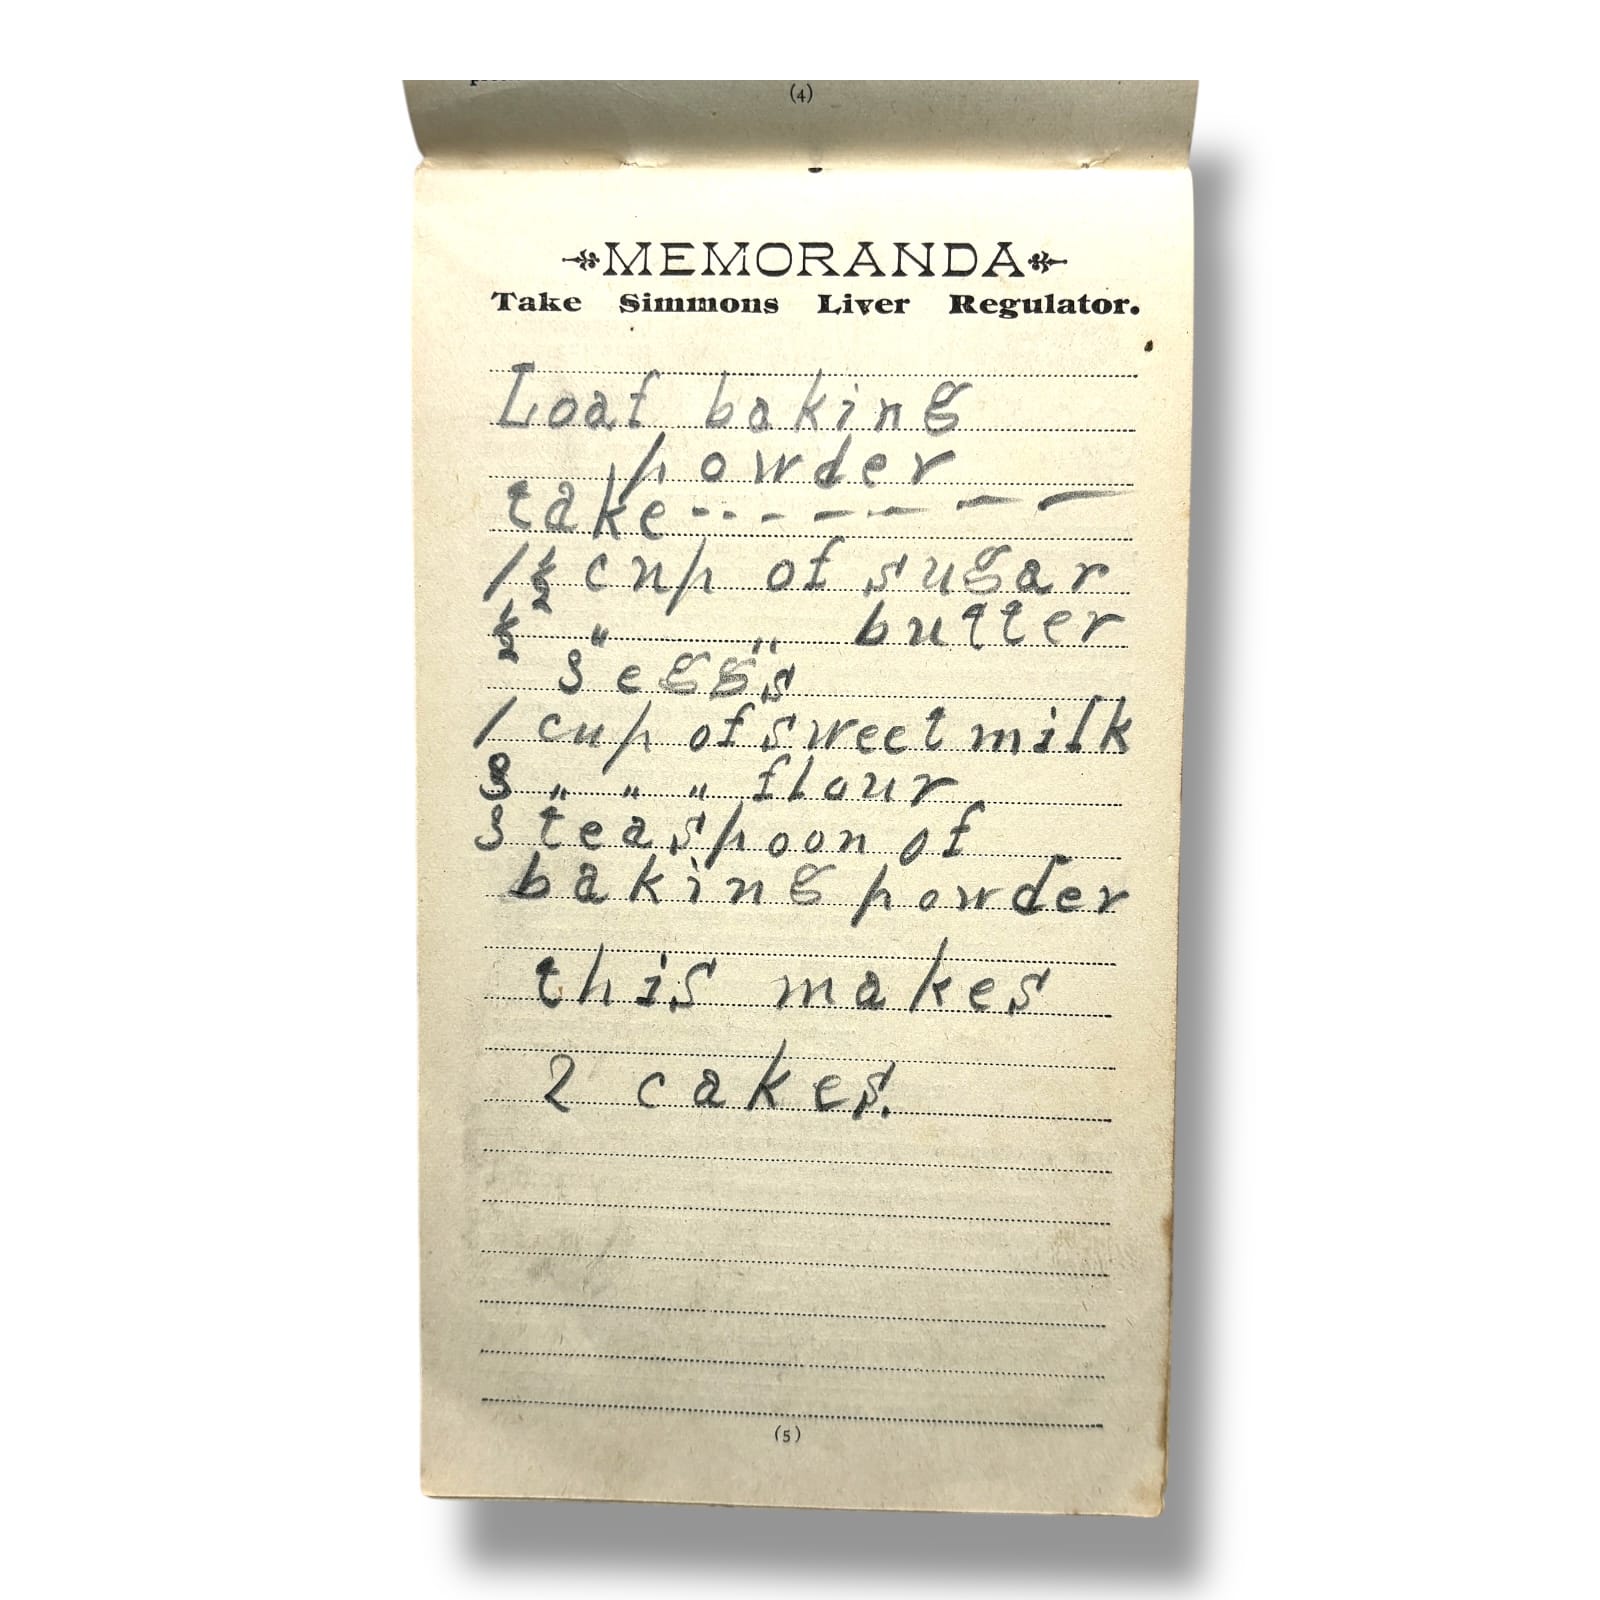 (4)
MEMORANDA
Take Simmons Liver Regulator.
Loaf baking
powder
take -- - - - - -
1 1/2 cup of sugar
1/2 " " butter
3 eggs
1 cup of sweet milk
3 " " " flour
3 teaspoon of
baking powder
this makes
2 cakes.
(5)